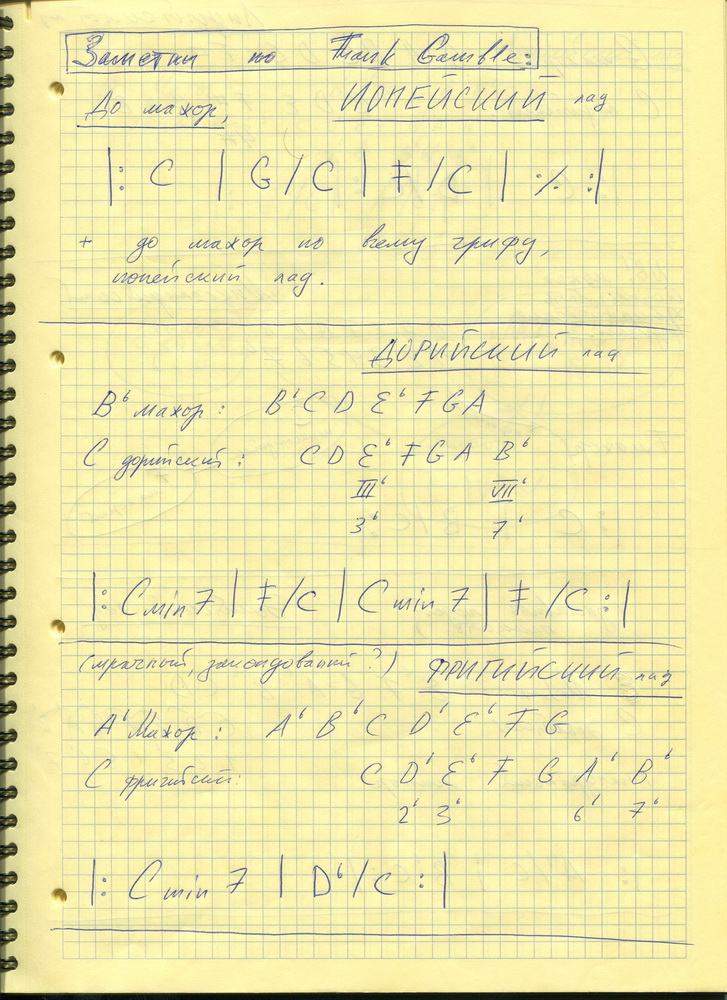 Заметки по Frank Gamble:
До мажор, ИОНЕЙСКИЙ лад
|: C | G/C | F/C | ٪ :|
+ до мажор по всему грифу,
ионейский лад.
ДОРИЙСКИЙ лад
B♭ мажор: B♭ C D E♭ F G A
C дорийский: C D E♭ F G A B♭
III♭ VII♭
3♭ 7♭
|: C min 7 | F/C | C min 7 | F/C :|
(мрачный, ?) ФРИГИЙСКИЙ лад
A♭ Мажор: A♭ B♭ C D♭ E♭ F G
C фригийский: C D♭ E♭ F G A♭ B♭
2♭ 3♭ 6♭ 7♭
|: C min 7 | D♭/C :|